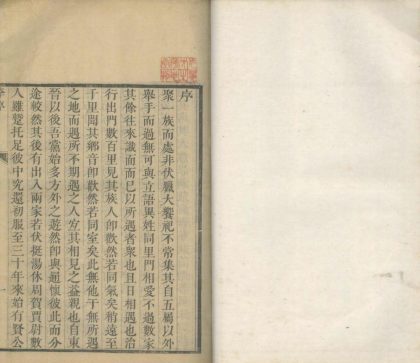 序
聚一族而處非伏臘大饗祀不常集其自五屬以外
舉手而過無可與立語異姓同里門相愛不過數家
其餘往來識面而已以所遇者衆也且日相遇也治
行出門數百里見其族人卽歡然若同氣矣稍遠至
千里聞其鄉音卽歡然若同室矣此無他于無所遇
之地而遇所不期遇之人宐其相見之益親也自東
晉以後吾黨始多方外之遊然卽與遊惟彼此而分
途較然其後有出入兩家若伏挺湯休周賀賈尉數
人雖蹔托足彼中究還初服至三十年來始有賢公
序
一